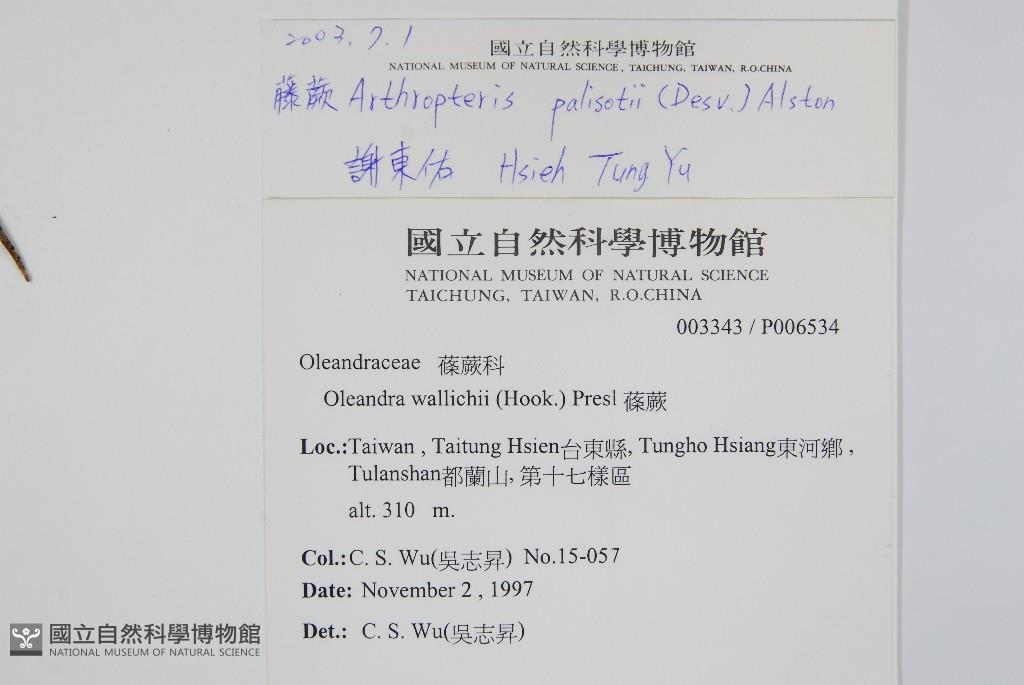 2003.7.1
國立自然科學博物館
NATIONAL MUSEUM OF NATURAL SCIENCE, TAICHUNG, TAIWAN, R.O.CHINA
藤蕨 Arthropteris palisotii (Desv.) Alston
謝東佑 Hsieh Tung Yu
國立自然科學博物館
NATIONAL MUSEUM OF NATURAL SCIENCE
TAICHUNG, TAIWAN, R.O.CHINA
003343 / P006534
Oleandraceae 蓧蕨科
Oleandra wallichii (Hook.) Presl 蓧蕨
Loc.:Taiwan , Taitung Hsien台東縣, Tungho Hsiang東河鄉 ,
Tulanshan都蘭山, 第十七樣區
alt. 310 m.
Col.: C. S. Wu(吳志昇) No.15-057
Date: November 2 , 1997
Det.: C. S. Wu(吳志昇)
國立自然科學博物館
NATIONAL MUSEUM OF NATURAL SCIENCE